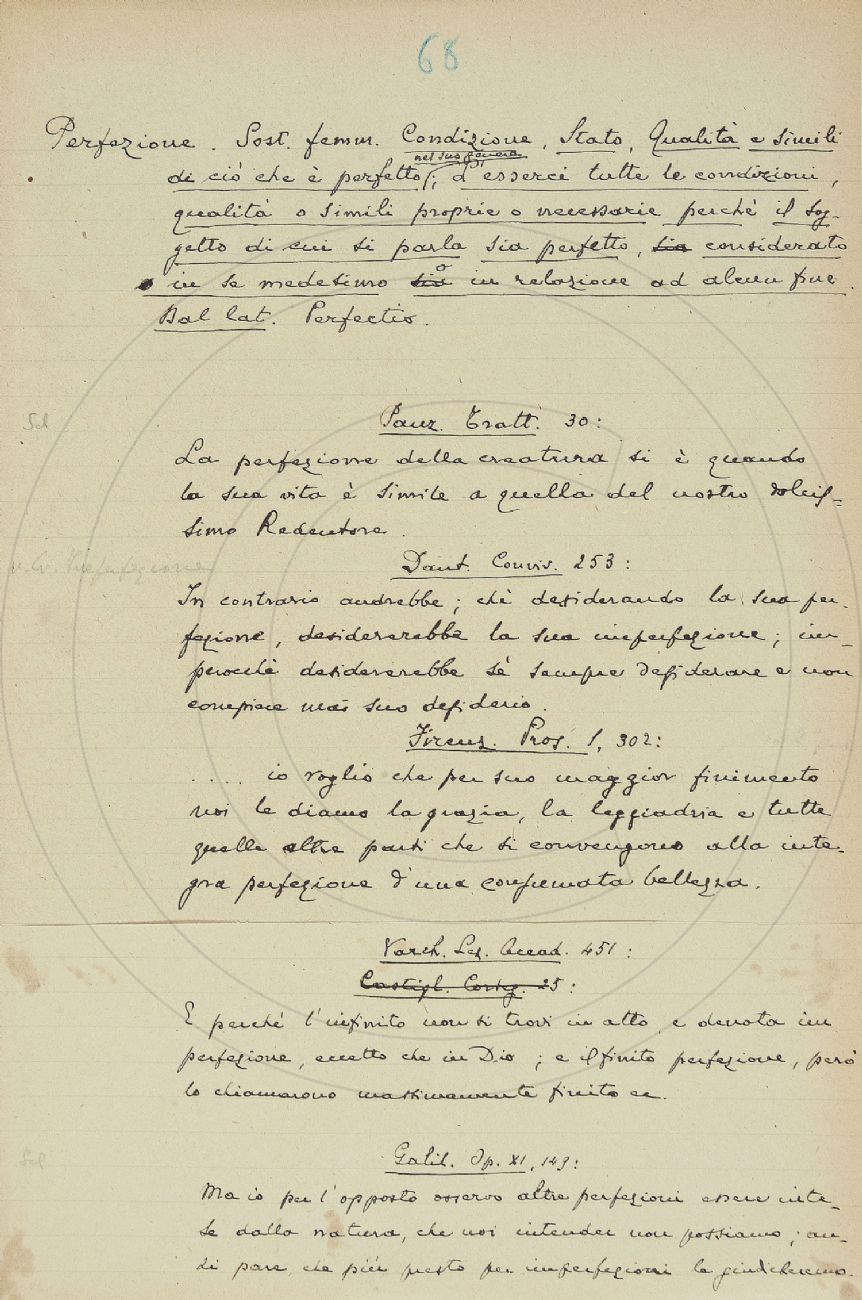 68
Perfezione. Sost. femm. Condizione, Stato, Qualità e simili
nel suo genere
di ciò che è perfetto; d'esserci tutte le condizioni,
qualità o simili proprie o necessarie perchè il sog-
getto di cui si parla sia perfetto, sia considerato
in se medesimo sia o in relazione ad alcun fine.
Dal lat. Perfectio.
Panz. Tratt. 30:
La perfezione della creatura si è quando
la sua vita è simile a quella del nostro dolcis-
simo Redentore.
Dant. Conviv. 253:
In contrario andrebbe; chè desiderando la sua per-
fezione, desidererebbe la sua imperfezione; im-
perocchè desidererebbe sè sempre desiderare e non
compiere mai suo desiderio.
Firenz. Pros. 1, 302:
.... io voglio che per suo maggior finimento
noi le diamo la grazia, la leggiadria e tutte
quelle altre parti che si convengono alla inte-
gra perfezione d'una consumata bellezza.
Varch. Lez. Accad. 451:
Castigl. Corteg. 25:
E perchè l'infinito non si trovi in atto, e denota im
perfezione, eccetto che in Dio; e il finito perfezione, però
lo chiamarono massimamente finito ec.
Galil. Op. XI, 149:
Ma io per l'opposto osservo altre perfezioni essere inte-
se dalla natura, che noi intender non possiamo; an-
zi pare che più presto per imperfezioni le giudicheremo.